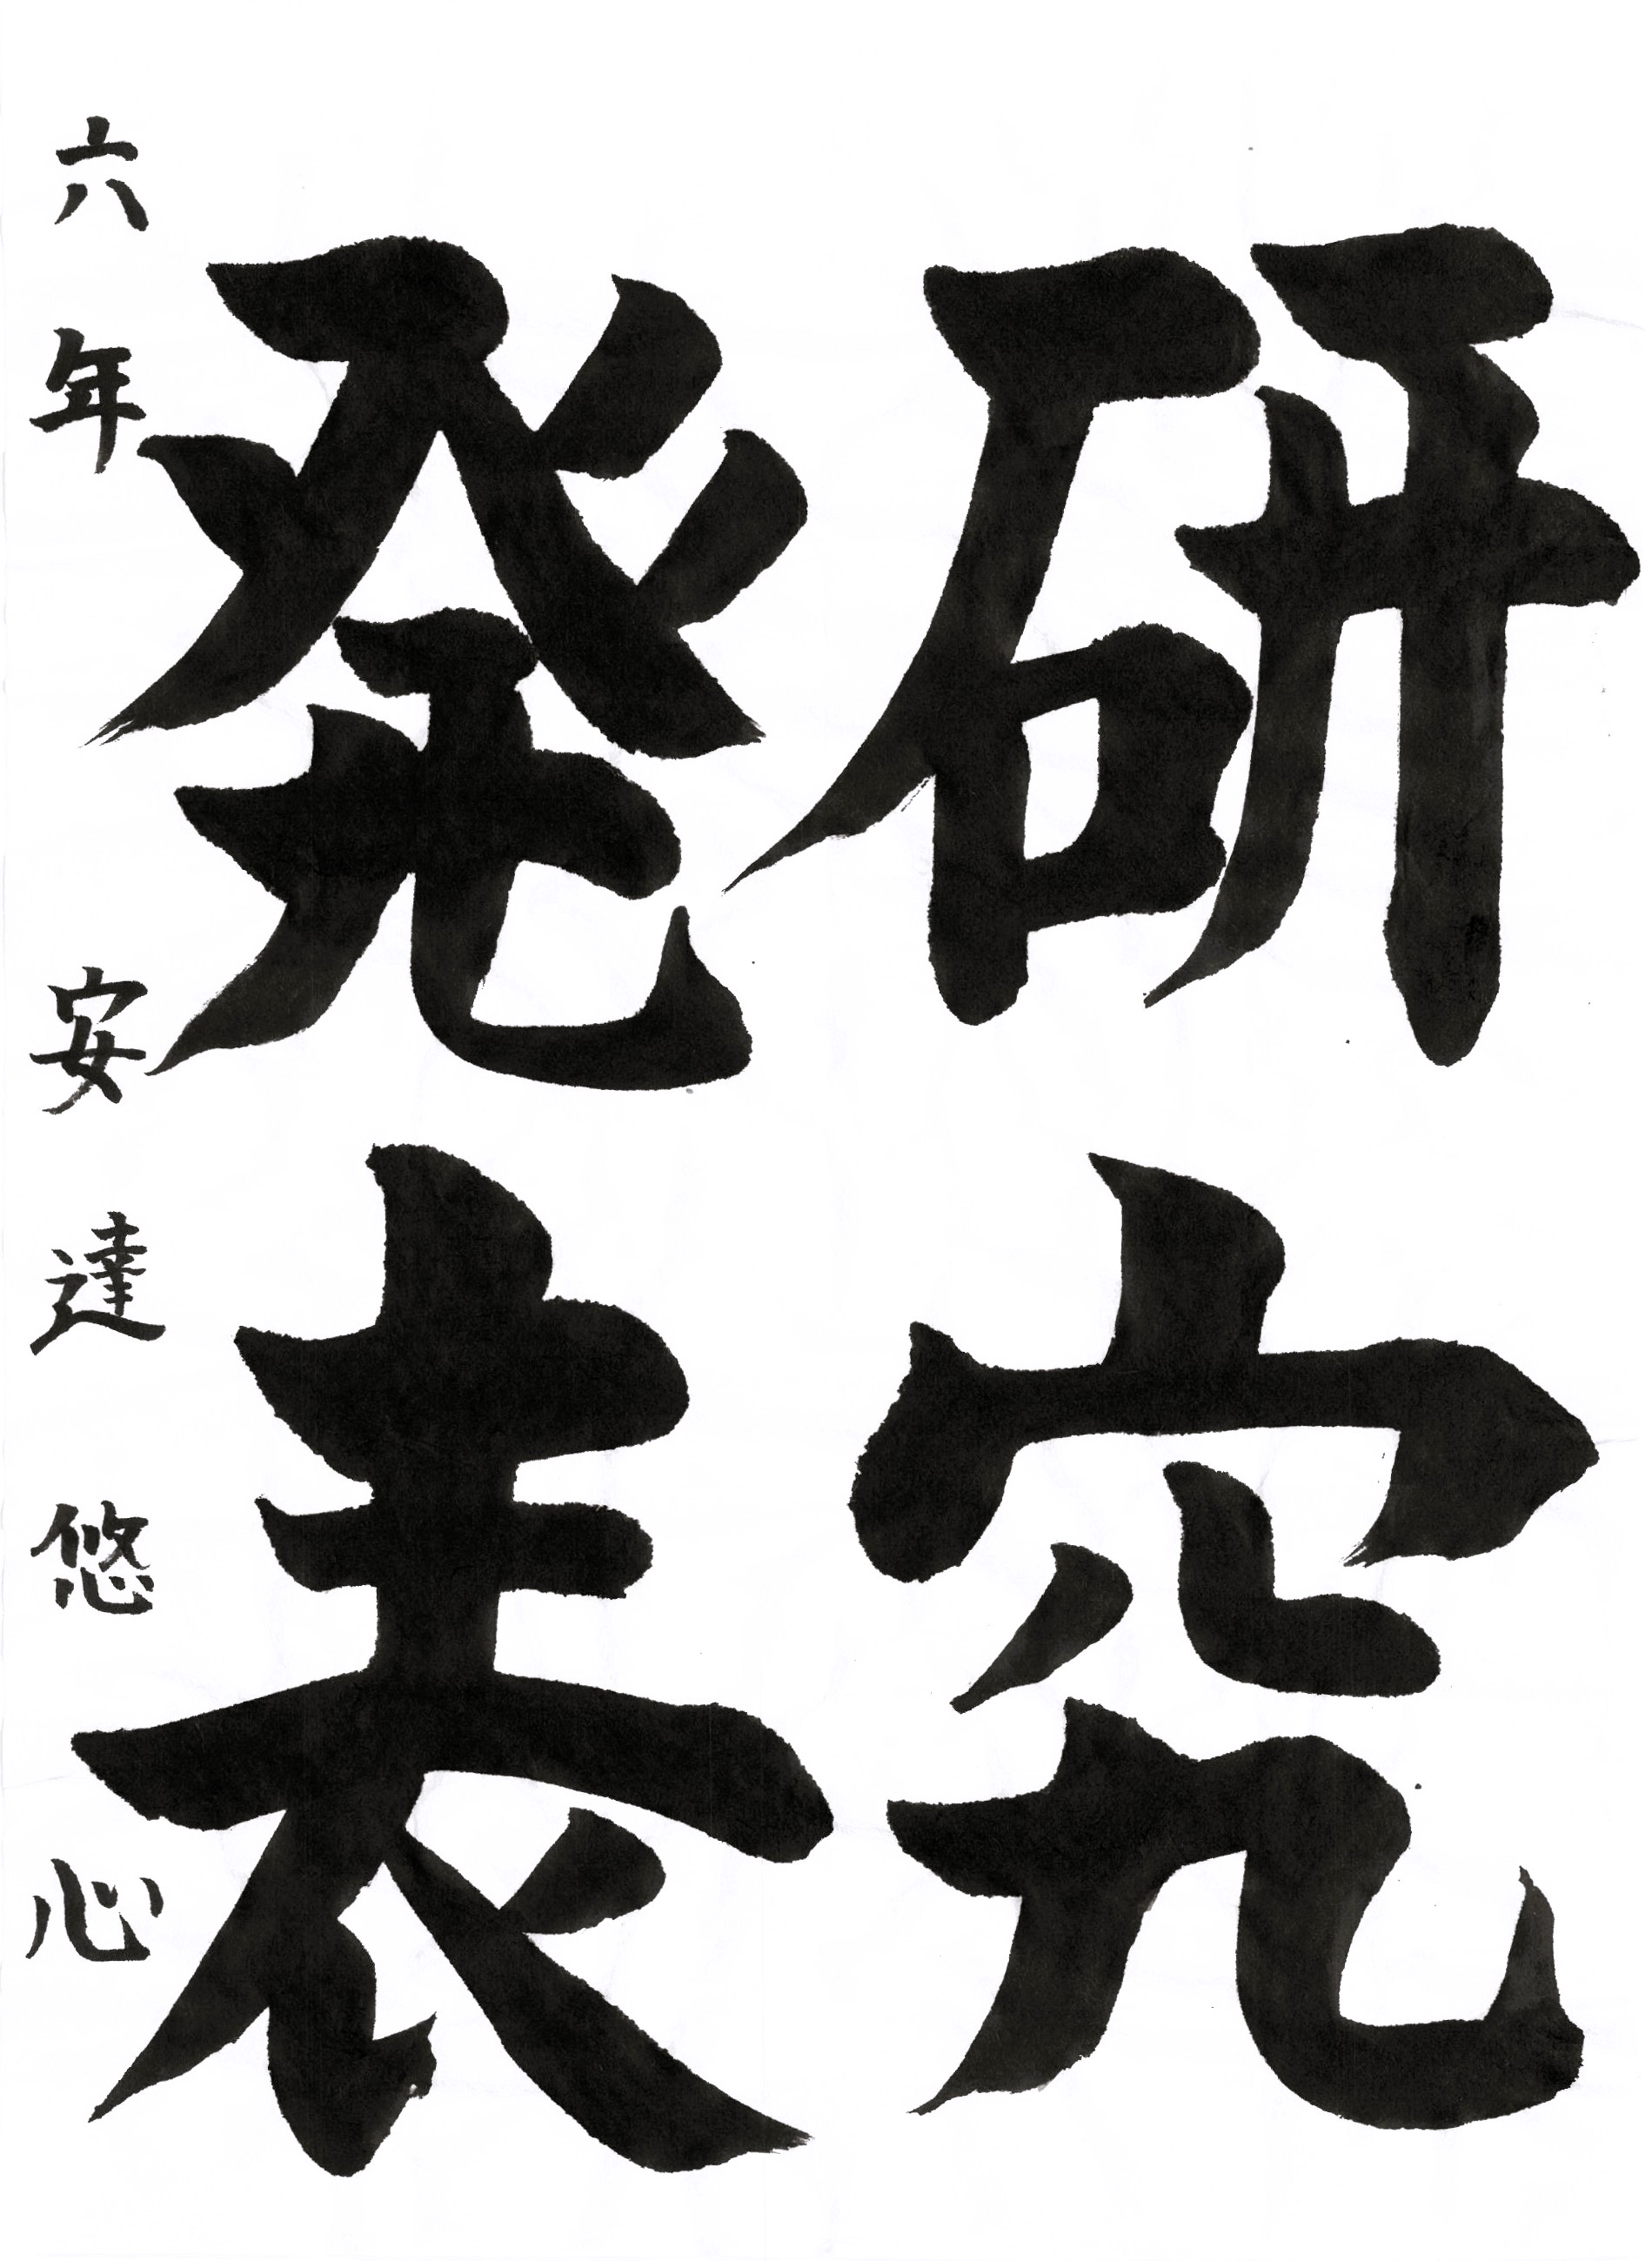 研究
発表
六年 安達悠心